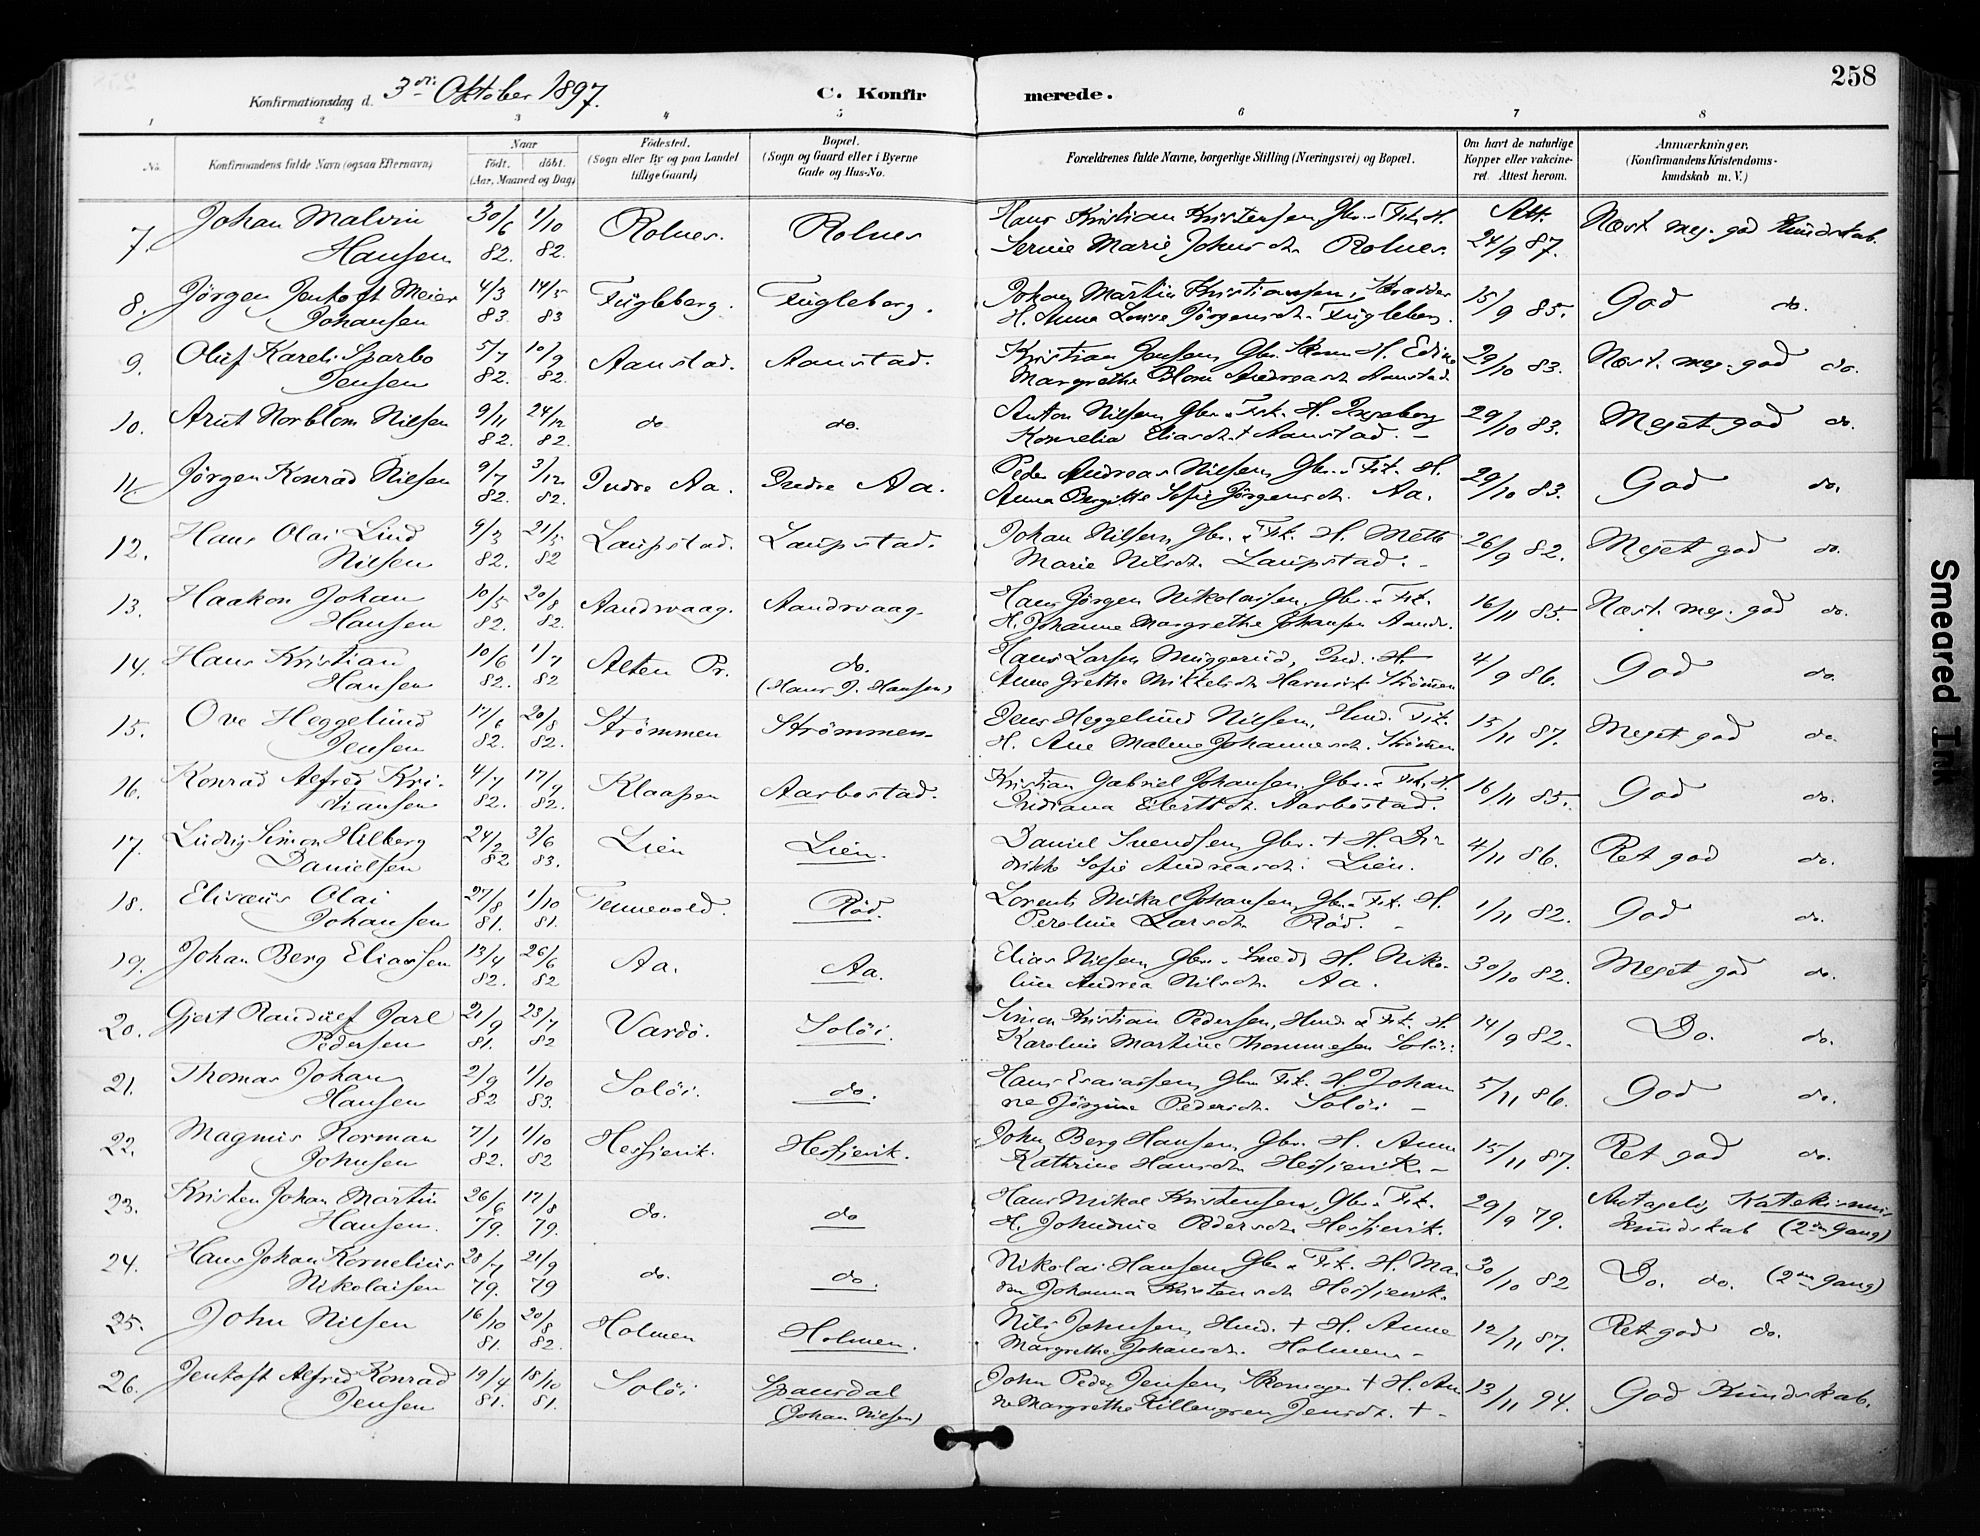 258
Konfirmationsdag d. 3die Oktober 1897.
C. Konfir merede.
1 2 3 4 5 6 7 8
No. Konfirmandens fulde Navn (ogsaa Efternavn)
Naar
født. døbt.
(Aar, Maaned og Dag)
Födested.
(Sogn eller By og paa Landet
tillige Gaard)
Bopæl.
(Sogn og Gaard eller i Byerne
Gade og Hus-No.
Forældrenes fulde Navne, borgerlige Stilling (Næringsvei) og Bopæl.
Om havt de naturlige
Kopper eller vakcine-
ret. Attest herom.
Anmærkninger.
(Konfirmandens Kristendoms-
kundskab m. V.)
7. Johan Malvin 30/6 1/10 Rolnes. Rolnes Hans Kristian Kristensen Gbr. Fisk. H. Att. Næst meg. god Kundskab.
Hansen 82. 82. Marie Johnsdt. Rolnes. 24/9 87.
8. Jørgen Jentoft Meier 4/3 14/5 Fugleberg. Fugleberg. Johan Martin Kristianssen, Skrædder 15/9 85. God do.
Johansen 83. 83 H. Anna Lovise Jørgensdt. Fugleberg.
9. Oluf Kareli Sparbo 5/7 10/9 Aanstad. Aanstad. Kristian Jensen, Gbr. H. Edine 29/10 83. Næst. meg. god do.
Jensen 82. 82. Margrethe Blom Andreasdt. Aanstad.
10. Arnt Norblom Nilsen 9/11 24/12 do do. Anton Nilsen, Gbr. Fisk. H. Ingeborg 29/10 83. Meget god do.
82. 82. Kornelia Eliasdt. + Aanstad. -
11. Jörgen Konrad Nilsen 9/7 3/12 Indre Aa. Indre Aa. Peder Andreas Nilsen, Gbr. Fisk. H. 29/10 83. God do.
82. 82. Anna Bergitte Sofie Jørgensdt. Aa.
12. Hans Olai Lind 9/3 21/5 Laupstad. Laupstad. Johan Nilsen, Gbr. & Fisk. H. Mette 26/9 82. Meget god do.
Nilsen 82. 82 Marie Nilsdt. Laupstad. -
13. Haakon Johan 10/5 20/8 Aandvaag. Aandvaag. Hans Jörgen Nikolaisen, Gbr. & Fisk. 16/11 85. Næst. meg. god do.
Hansen 82. 82. H. Johanne Margrethe Johansen
14. Hans Kristian 10/6 1/7 Alten Pr. do. Hans Larsen Muggerud, Ind. H. 4/9 86. God do.
Hansen 82. 82 (Hans J. Hansen) Anne Grethe Mikkelsdt. Strømmen
15. Ove Heggelund 17/6 20/8 Strömmen Strömmen. Jens Heggelund Nilsen, Hmd. Fisk. 15/11 87. Meget god do.
Jensen 82. 82. H. Ane Malene Johannesdt. Strömmen
16. Konrad Alfred Kri- 4/7 17/9 Klaapen Aarbostad. Kristian Gabriel Johansen, Gbr. & Fisk. H. 16/11 85. God do.
stiansen 82. 82. Indiana Eilertsdt. Aarbostad.
17. Ludvig Simon Hilberg 24/2 3/6 Lien Lien. Daniel Svendsen, Gbr. + H. Di- 4/11 86. Ret god do.
Danielsen 82 83. drikke Sofie Andreasdt. Lien.
18. Elisæus Olai 27/8 1/10 Tennevold. Rød. Lorents Mikal Johansen, Gbr. Fisk. H. 1/11 82. God do.
Johansen 81. 81. Peroline Larsdt. Rød. -
19. Johan Berg Eliassen 13/4 26/6 Aa. Aa. Elias Nilsen, Gbr. Smed, H. Niko- 30/10 82. Meget god do.
82. 82 line Andrea Nilsdt. Aa.
20. Gjert Randulf Jarl 21/9 23/7 Vardö. Solöi. Simon Kristian Pedersen, Hmd. & Fisk. H. 14/9 82. Do. do.
Pedersen 81. 82 Karoline Martine Thommesen Solöi.
21. Thomas Johan 2/9 1/10 Solöi. do. Hans Esaiassen, Gbr. Fisk. H. Johan 5/11 86. God do.
Hansen 82 83. ne Jörgine Pedersdt. Solöi -
22. Magnus Norman 7/1 1/10 Hesjevik. Hesjevik. John Berg Hansen, Gbr. H. Anne 15/11 87. Ret god do.
Johnsen 82. 82 Kathrine Hansdt. Hesjevik. -
23. Kristen Johan Martin 26/6 17/8 do. do Hans Mikal Kristensen, Gbr. & Fisk. 29/9 79. Antagelig Katekismus
Hansen. 79. 79. H. Johanne Pedersdt. Hesjevik. kundskab (2den Gang)
24. Hans Johan Kornelius 28/7 21/9 do. do. Nikolai Hansen, Gbr. & Fisk. H. Ma 30/10 82 Do. do. (2den Gang)
Nikolaisen 79. 79 ren Johanna Kristensdt. Hesjevik.
25. John Nilsen 16/10 20/8 Holmen Holmen. Nils Johnsen, Hmd. + H. Anne 12/11 87. Ret god do.
81. 82. Margrethe Johansdt. Holmen -
26. Jentoft Alfred Konrad 19/4 18/10 Solöi Spansdal John Peder Jensen, Skomager + H. An 13/11 94. God Kundskab.
Jensen 81. 81. (Johan Nilsen) ne Margrethe Killengreen Jensdt. + -
Smeared Ink